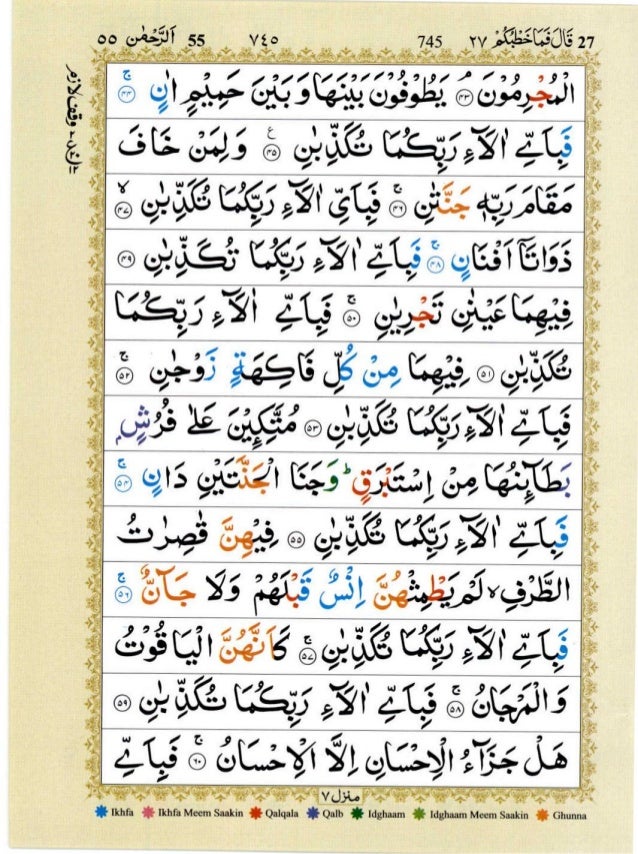 27 قَالَ فَمَا خَطْبُكُمْ ٢٧ 745 ٧٤٥ 55 اَلرَّحْمٰن ٥٥
الْمُجْرِمُوْنَ ۘ ﴿٤٣﴾ يَطُوْفُوْنَ بَيْنَهَا وَ بَيْنَ حَمِيْمٍ اٰنٍ ۚ ﴿٤٤﴾
فَبِاَيِّ اٰلَآءِ رَبِّكُمَا تُكَذِّبٰنِ ﴿٤٥﴾ وَ لِمَنْ خَافَ
مَقَامَ رَبِّهٖ جَنَّتٰنِ ۚ ﴿٤٦﴾ فَبِاَيِّ اٰلَآءِ رَبِّكُمَا تُكَذِّبٰنِ ۙ ﴿٤٧﴾
ذَوَاتَاۤ اَفْنَانٍ ۚ ﴿٤٨﴾ فَبِاَيِّ اٰلَآءِ رَبِّكُمَا تُكَذِّبٰنِ ﴿٤٩﴾
فِيْهِمَا عَيْنٰنِ تَجْرِيٰنِ ۚ ﴿٥٠﴾ فَبِاَيِّ اٰلَآءِ رَبِّكُمَا
تُكَذِّبٰنِ ﴿٥١﴾ فِيْهِمَا مِنْ كُلِّ فَاكِهَةٍ زَوْجٰنِ ۚ ﴿٥٢﴾
فَبِاَيِّ اٰلَآءِ رَبِّكُمَا تُكَذِّبٰنِ ﴿٥٣﴾ مُتَّكِـِٕيْنَ عَلٰى فُرُشٍۭ
بَطَآئِنُهَا مِنْ اِسْتَبْرَقٍ ؕ وَ جَنَا الْجَنَّتَيْنِ دَانٍ ۚ ﴿٥٤﴾
فَبِاَيِّ اٰلَآءِ رَبِّكُمَا تُكَذِّبٰنِ ﴿٥٥﴾ فِيْهِنَّ قٰصِرٰتُ
الطَّرْفِ ۙ لَمْ يَطْمِثْهُنَّ اِنْسٌ قَبْلَهُمْ وَلَا جَآنٌّ ۚ ﴿٥٦﴾
فَبِاَيِّ اٰلَآءِ رَبِّكُمَا تُكَذِّبٰنِ ۚ ﴿٥٧﴾ كَاَنَّهُنَّ الْيَاقُوْتُ
وَالْمَرْجَانُ ۚ ﴿٥٨﴾ فَبِاَيِّ اٰلَآءِ رَبِّكُمَا تُكَذِّبٰنِ ﴿٥٩﴾
هَلْ جَزَآءُ الْاِحْسَانِ اِلَّا الْاِحْسَانُ ۚ ﴿٦٠﴾ فَبِاَيِّ
منزل ٧
Ikhfa Ikhfa Meem Saakin Qalqala Qalb Idghaam Idghaam Meem Saakin Ghunna